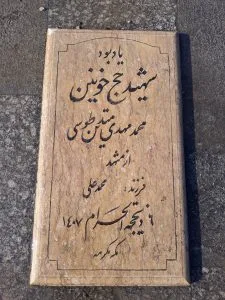 یادبود
شهید حج خونین
محمد مهدی متدین طوسی
از مشهد
فرزند: محمد علی
۶ ذیحجه الحرام ۱۴۰۷
مکه مکرمه